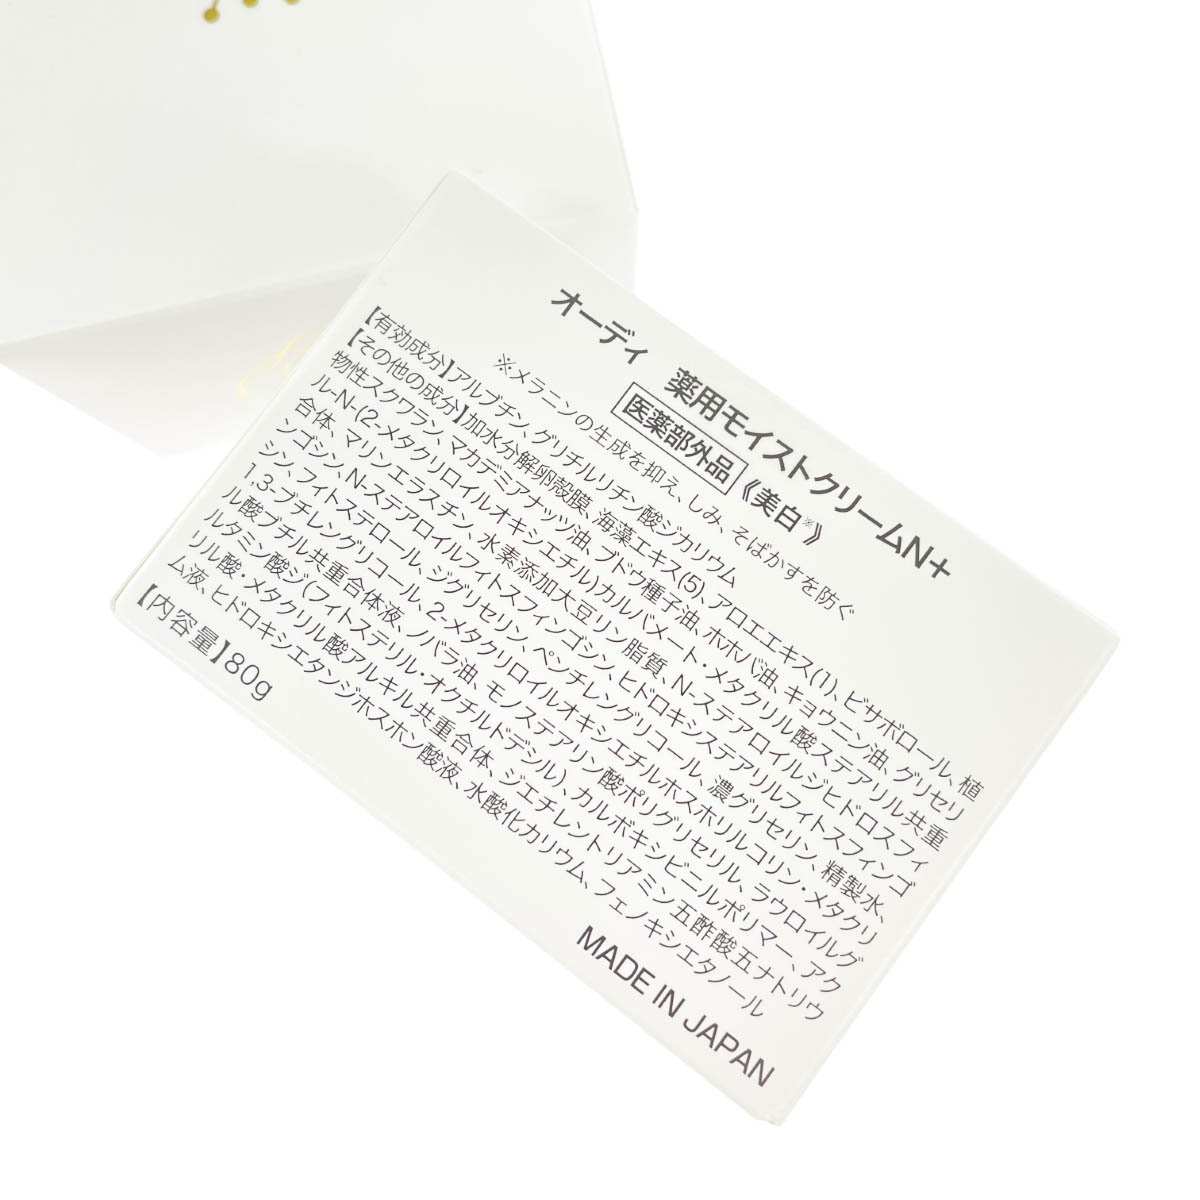 オーディ 薬用モイストクリームN+
医薬部外品 《美白※》
※メラニンの生成を抑え、しみ、そばかすを防ぐ
【有効成分】アルブチン、グリチルリチン酸ジカリウム
【その他の成分】加水分解卵殻膜、海藻エキス(5)、アロエエキス(1)、ビサボロール、植
物性スクワラン、マカデミアナッツ油、ブドウ種子油、ホホバ油、キョウニン油、グリセリ
ル-N-(2-メタクリロイルオキシエチル)カルバメート・メタクリル酸ステアリル共重
合体、マリンエラスチン、水素添加大豆リン脂質、N-ステアロイルジヒドロスフィ
ンゴシン、N-ステアロイルフィトスフィンゴシン、ヒドロキシステアリルフィトスフィンゴ
シン、フィトステロール、ジグリセリン、ペンチレングリコール、濃グリセリン、精製水、
1,3-ブチレングリコール、2-メタクリロイルオキシエチルホスホリルコリン・メタクリ
ル酸ブチル共重合体液、ノバラ油、モノステアリン酸ポリグリセリル、ラウロイルグ
ルタミン酸ジ(フィトステリル・オクチルドデシル)、カルボキシビニルポリマー、アク
リル酸・メタクリル酸アルキル共重合体、ジエチレントリアミン五酢酸五ナトリウ
ム液、ヒドロキシエタンジホスホン酸液、水酸化カリウム、フェノキシエタノール
【内容量】80g
MADE IN JAPAN